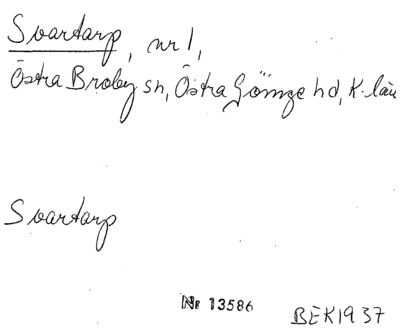 Svartarp, nr 1,
Östra Broby sn, Östra Göinge hd, K-län
Svartarp
Nr 13586
BEK 1937